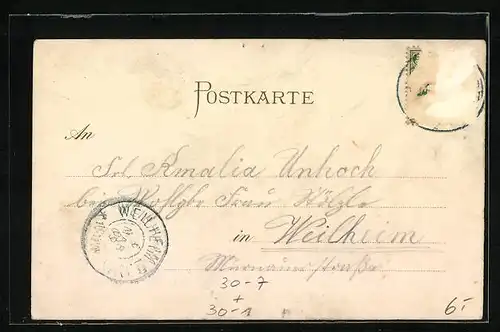 POSTKARTE
An
Frl. Amalia Unhoch
bei Frau Hölzle
in Weilheim
Murnauerstraße
WEILHEIM
30-7
+
30-1
6.-